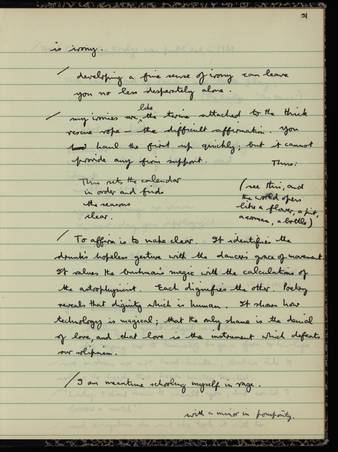 21
is irony.
/ developing a fine sense of irony can leave
you no less desperately alone.
/ my ironies are, like the twine attached to the thick
rescue rope — the difficult affirmation. You
haul the first up quickly; but it cannot
provide any firm support. Thus:
This sets the calendar
in order and finds
the reasons
clear.
(see this, and
the world opens
like a flower, a pit,
a woman, a bottle)
/ To affirm is to make clear. It identifies the
drunks hopeless gesture with the dancer's grace of movement.
It values the bushman's magic with the calculations of
the astrophysicist. Each dignifies the other. Poetry
reveals that dignity which is human. It shows how
technology is magical; that the only shame is the denial
of love, and that love is the instrument which defeats
our solipsism.
/ I am meantime schooling myself in rage.
with a minor in pomposity.